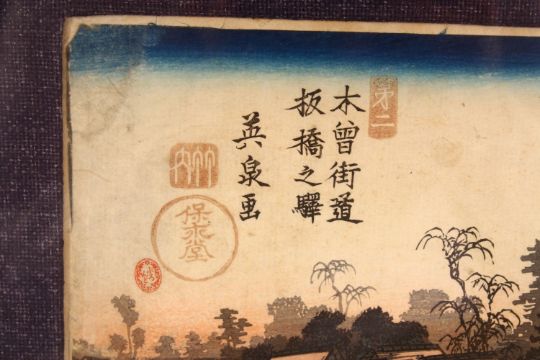 第二
木曽街道
板橋之驛
英泉画
竹内
保永堂